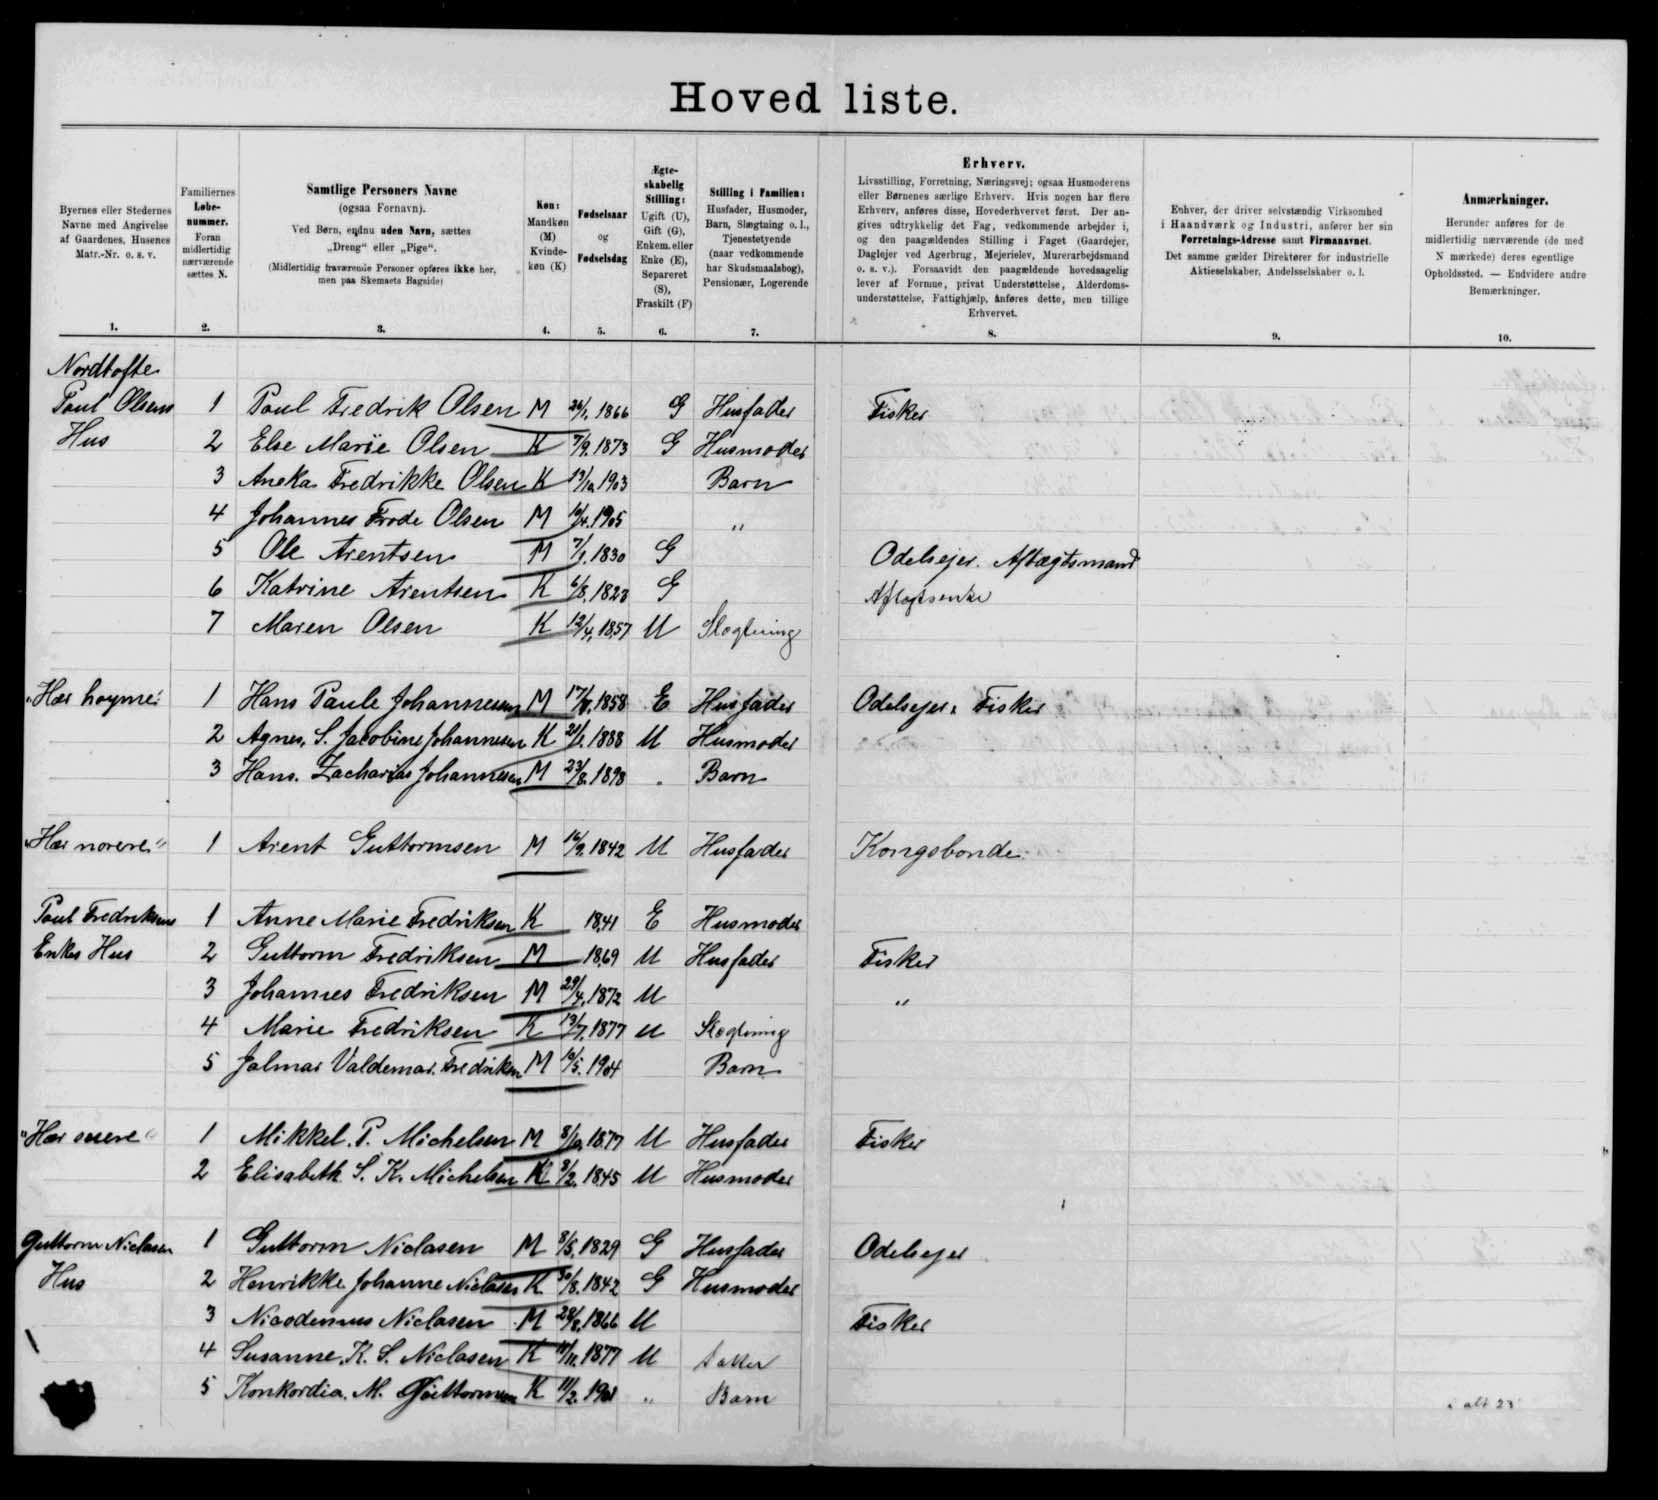 Hovedliste.
Byernes eller Stedernes Navne med Angivelse af Gaardenes, Husenes Matr.-Nr. o. s. v.
Familiernes Løbe-nummer. Foran midlertidig nærværende sættes N.
Samtlige Personers Navne (ogsaa Fornavn). Ved Børn, endnu uden Navn, sættes „Dreng" eller „Pige". (Midlertidig fraværende Personer opføres ikke her, men paa Skemaets Bagside)
Køn: Mandkøn (M) Kvinde-køn (K)
Fødselsaar og Fødselsdag
Ægte-skabelig Stilling: Ugift (U), Gift (G), Enkem. eller Enke (E), Separeret (S), Fraskilt (F)
Stilling i Familien: Husfader, Husmoder, Barn, Slægtning o. l., Tjenestetyende (naar vedkommende har Skudsmaalsbog), Pensionær, Logerende
Erhverv. Livsstilling, Forretning, Næringsvej; ogsaa Husmoderens eller Børnenes særlige Erhverv. Hvis nogen har flere Erhverv, anføres disse, Hovederhvervet først. Der an-gives udtrykkelig det Fag, vedkommende arbejder i, og den paagældendes Stilling i Faget (Gaardejer, Daglejer ved Agerbrug, Mejerielev, Murerarbejdsmand o. s. v.). Forsaavidt den paagældende hovedsagelig lever af Formue, privat Understøttelse, Alderdoms-understøttelse, Fattighjælp, anføres dette, men tillige Erhvervet.
Enhver, der driver selvstændig Virksomhed i Haandværk og Industri, anfører her sin Forretnings-Adresse samt Firmanavnet. Det samme gælder Direktører for industrielle Aktieselskaber, Andelsselskaber o. l.
Anmærkninger. Herunder anføres for de midlertidig nærværende (de med N mærkede) deres egentlige Opholdssted. — Endvidere andre Bemærkninger.
1. 2. 3. 4. 5. 6. 7. 8. 9. 10.
Nordtofte
Poul Olsens 1 Poul Fredrik Olsen M 26/1. 1866 G Husfader Fisker
Hus 2 Else Marie Olsen K 7/9. 1873 G Husmoder
3 Aneka Fredrikke Olsen K 1903 Barn
4 Johannes Frode Olsen M 10/4. 1905 "
5 Ole Arentsen M 7/1. 1830 G Odelsejer. Aftægtsmand
6 Katrine Arentsen K 6/8. 1823 G
7 Maren Olsen K 12/4. 1857 U Slægtning
1 Hans Paule Johannesen M 1858 E Husfader Odelsejer, Fisker
2 Agnes. S. Jacobine Johannesen K 21/1. 1888 U Husmoder
3 Hans. Zacharias Johannesen M 23/8. 1898 " Barn
1 Arent Guttormsen M 16/9. 1842 U Husfader Kongsbonde
Poul Fredriksens 1 Anne Marie Fredriksen K 1841 E Husmoder
Enkes Hus 2 Guttorm Fredriksen M 1869 U Husfader Fisker
3 Johannes Fredriksen M 29/4. 1872 U "
4 Marie Fredriksen K 13/7. 1877 U Slægtning
5 Jalmar Valdemar. Fredriksen M 10/5. 1904 Barn
1 Mikkel. P. Michelsen M 8/10. 1877 U Husfader Fisker
2 Elisabeth S. K. Michelsen K 3/2. 1845 U Husmoder
Guttorm Niclasen 1 Guttorm Niclasen M 8/5. 1829 G Husfader Odelsejer
Hus 2 Henrikke Johanne Niclasen K 30/8. 1842 G Husmoder
3 Nicodemus Niclasen M 28/8. 1866 U Fisker
4 Susanne. K. S. Niclasen K 11/11. 1877 U Datter
5 Konkordia. M. Guttormsen K 11/2. 1901 " Barn
i alt 23